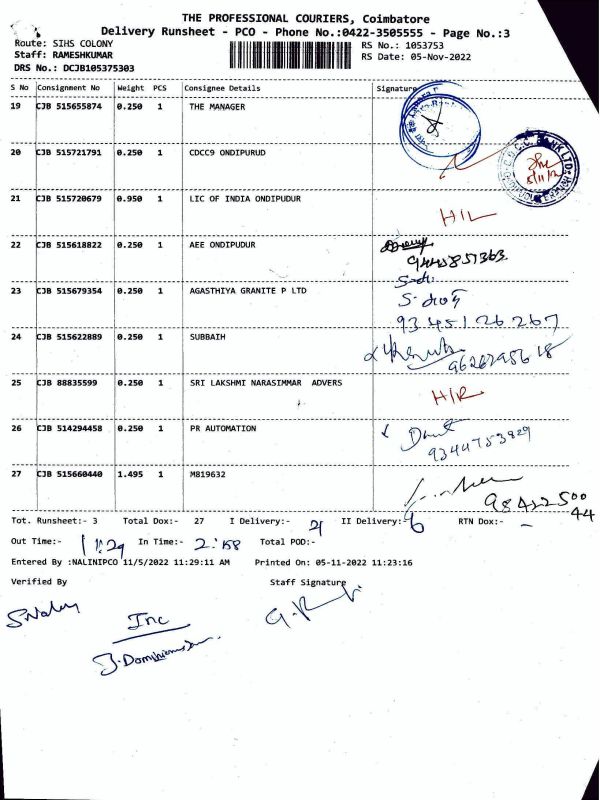 THE PROFESSIONAL COURIERS, Coimbatore
Delivery Runsheet - PCO - Phone No.:0422-3505555 - Page No.:3
Route: SIHS COLONY
RS No.: 1053753
Staff: RAMESHKUMAR
RS Date: 05-Nov-2022
DRS No.: DCJB105375303
S No Consignment No Weight PCS Consignee Details Signature
19 CJB 515655874 0.250 1 THE MANAGER
20 CJB 515721791 0.250 1 CDCC9 ONDIPURUD
21 CJB 515720679 0.950 1 LIC OF INDIA ONDIPUDUR
H/L
22 CJB 515618822 0.250 1 AEE ONDIPUDUR
9445857363
23 CJB 515679354 0.250 1 AGASTHIYA GRANITE P LTD
9345126267
24 CJB 515622889 0.250 1 SUBBAIH
25 CJB 88835599 0.250 1 SRI LAKSHMI NARASIMMAR ADVERS
H/R
26 CJB 514294458 0.250 1 PR AUTOMATION
9344753829
27 CJB 515660440 1.495 1 M819632
98422500
44
Tot. Runsheet:- 3 Total Dox:- 27 I Delivery:- 21 II Delivery:- 6 RTN Dox:- -
Out Time:- 11:29 In Time:- 2:58 Total POD:-
Entered By :NALINIPCO 11/5/2022 11:29:11 AM Printed On: 05-11-2022 11:23:16
Verified By Staff Signature
Inc